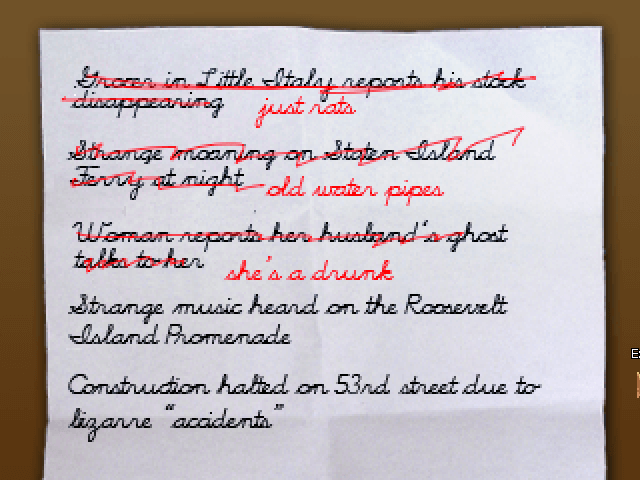 Grocer in Little Italy reports his stock
disappearing just rats
Strange moaning on Staten Island
Ferry at night old water pipes
Woman reports her husband's ghost
talks to her she's a drunk
Strange music heard on the Roosevelt
Island Promenade
Construction halted on 53rd street due to
bizarre "accidents"